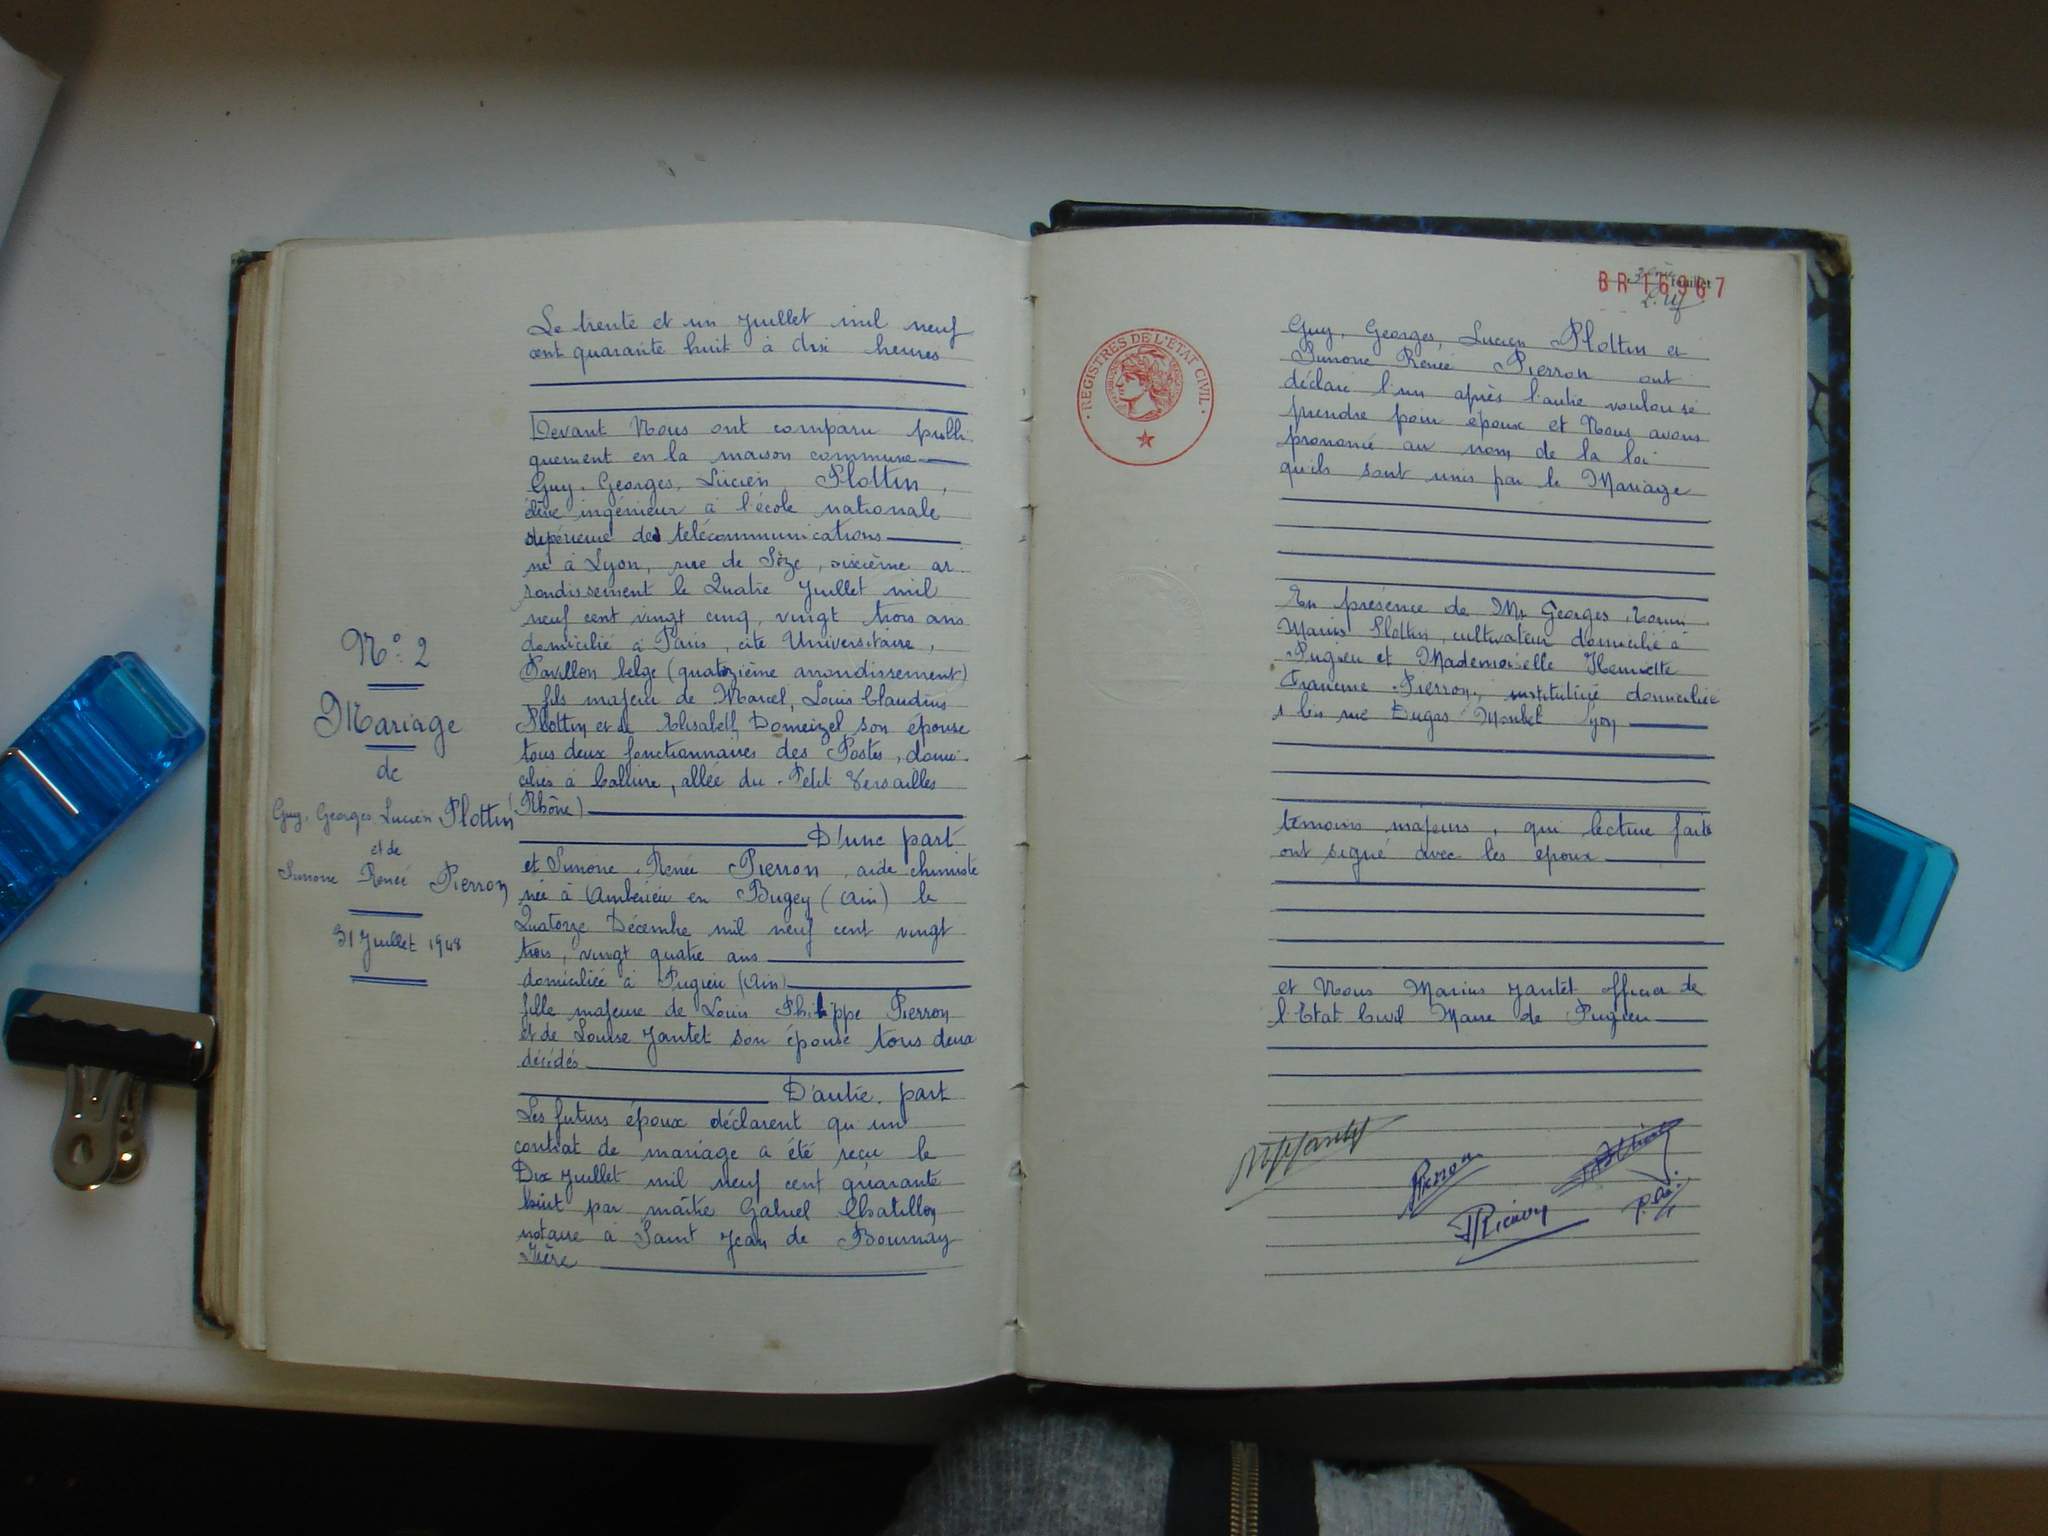 N° 2
Mariage
de
Guy, Georges, Lucien Plottin
et de
Simone Renée Pierron
31 Juillet 1948
Le trente et un Juillet mil neuf
cent quarante huit à dix heures
Devant Nous ont comparu publi-
quement en la maison commune
Guy, Georges, Lucien Plottin,
élève ingénieur à l'école nationale
supérieure des télécommunications
né à Lyon, rue de Sèze, sixième ar-
rondissement le Quatre Juillet mil
neuf cent vingt cinq, vingt trois ans
domicilié à Paris, cité Universitaire,
Pavillon belge (quatorzième arrondissement)
fils majeur de Marcel, Louis Claudius
Plottin et de Elisabeth Domeizel son épouse
tous deux fonctionnaires des Postes, domi-
ciliés à Calluire, allée du Petit Versailles
Rhône)
D'une part
et Simone, Renée Pierron, aide chimiste
née à Ambérieu en Bugey (Ain) le
Quatorze Décembre mil neuf cent vingt
trois, vingt quatre ans
domiciliée à Pugieu (Ain)
fille majeure de Louis Philippe Pierron
et de Louise Jantet son épouse tous deux
décédés
D'autre part
Les futurs époux déclarent qu'un
contrat de mariage a été reçu le
Dix Juillet mil neuf cent quarante
huit par maître Gabriel Chatillon
notaire à Saint Jean de Bournay
Isère
BR 16967
feuillet
REGISTRES DE L'ETAT CIVIL
Guy, Georges, Lucien Plottin et
Simone Renée Pierron ont
déclaré l'un après l'autre vouloir se
prendre pour époux et Nous avons
prononcé au nom de la loi
qu'ils sont unis par le Mariage
En présence de Mr Georges
Marius Plottin, cultivateur domicilié à
Pugieu et Mademoiselle Henriette
Francine Pierron, institutrice domiciliée
1 bis rue Dugas Monbet Lyon
témoins majeurs, qui lecture faite
ont signé avec les époux
et Nous Marius Jantet officier de
l'Etat Civil Maire de Pugieu
Jantet
Pierron